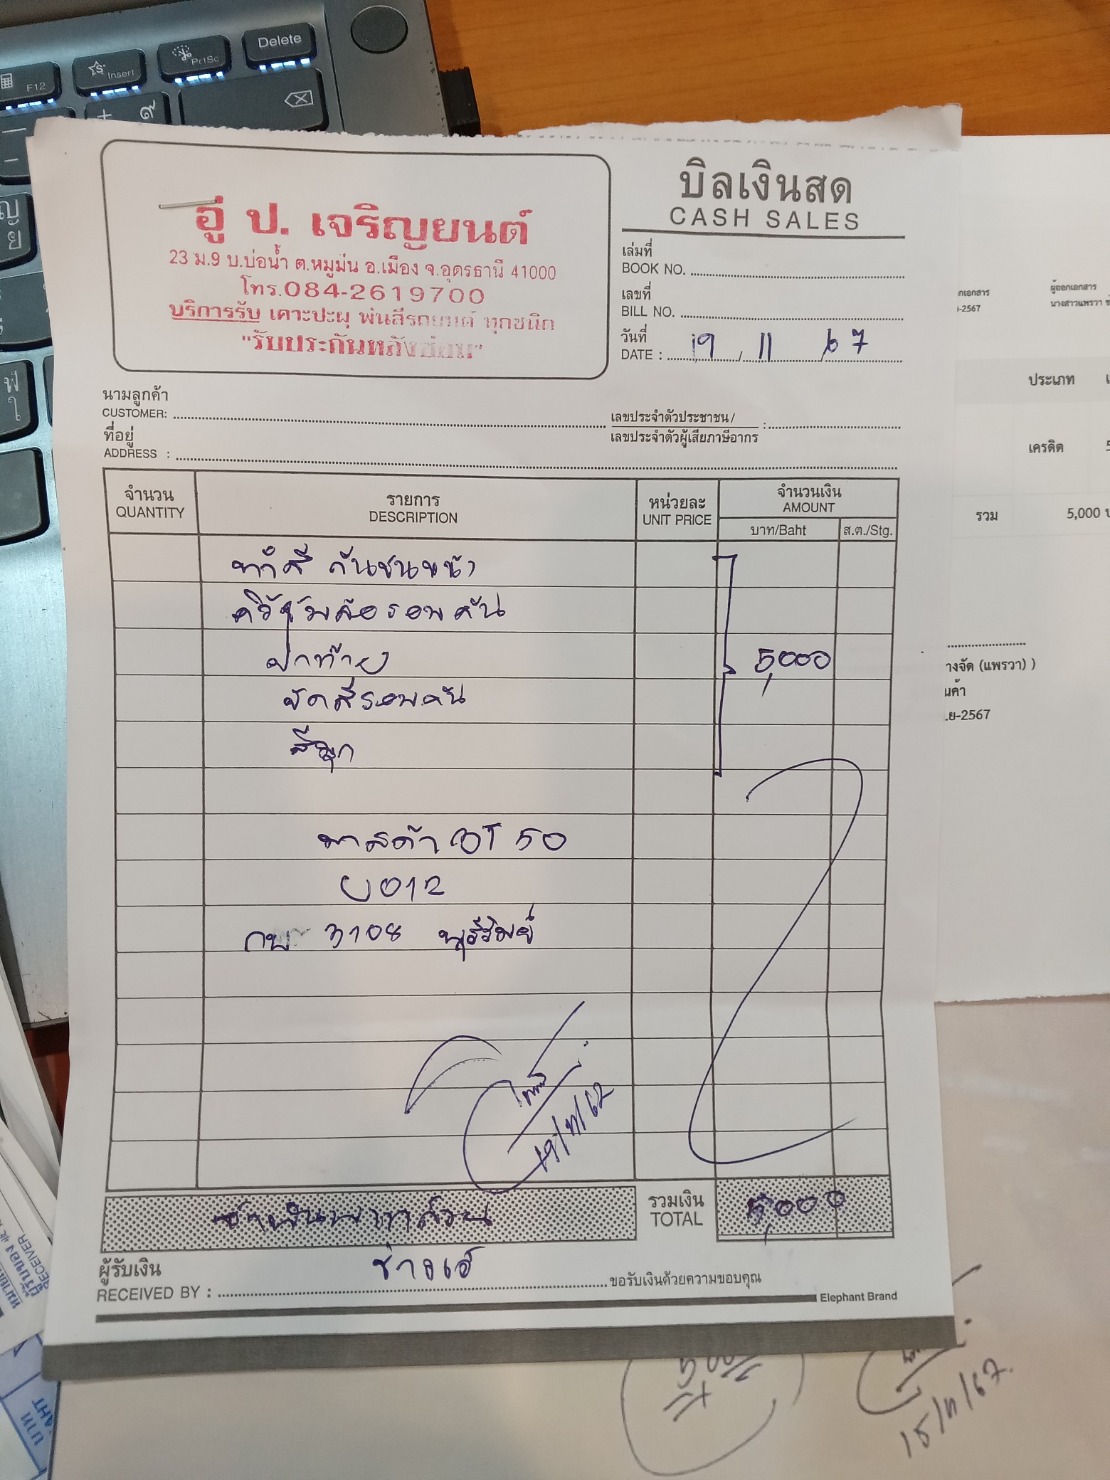 Delete
PrtSc
Insert
F12
อู่ ป. เจริญยนต์
23 ม.9 บ.บ่อน้ำ ต.หมูม่น อ.เมือง จ.อุดรธานี 41000
โทร.084-2619700
บริการรับ เคาะปะผุ พ่นสีรถยนต์ ทุกชนิด
"รับประกันหลังซ่อม"
บิลเงินสด
CASH SALES
เล่มที่
BOOK NO.
เลขที่
BILL NO.
วันที่
DATE : 19 / 11 / 67
นามลูกค้า
CUSTOMER:
เลขประจำตัวประชาชน /
เลขประจำตัวผู้เสียภาษีอากร :
ที่อยู่
ADDRESS :
จำนวน
QUANTITY
รายการ
DESCRIPTION
หน่วยละ
UNIT PRICE
จำนวนเงิน
AMOUNT
บาท/Baht
ส.ต./Stg.
ทำสี กันชนหน้า
คิ้วซุ้มล้อรอบคัน
ฝาท้าย
ขัดสีรอบคัน
สีมุก
5,000
มาสด้า BT 50
3108 บุรีรัมย์
19/11/67
รวมเงิน
TOTAL
5,000
ผู้รับเงิน
RECEIVED BY :
ขอรับเงินด้วยความขอบคุณ
Elephant Brand
ผู้ออกเอกสาร
-2567
ประเภท
เครดิต
รวม
5,000
างจัด (แพรวา) )
-2567
15/11/67
RECEIVER